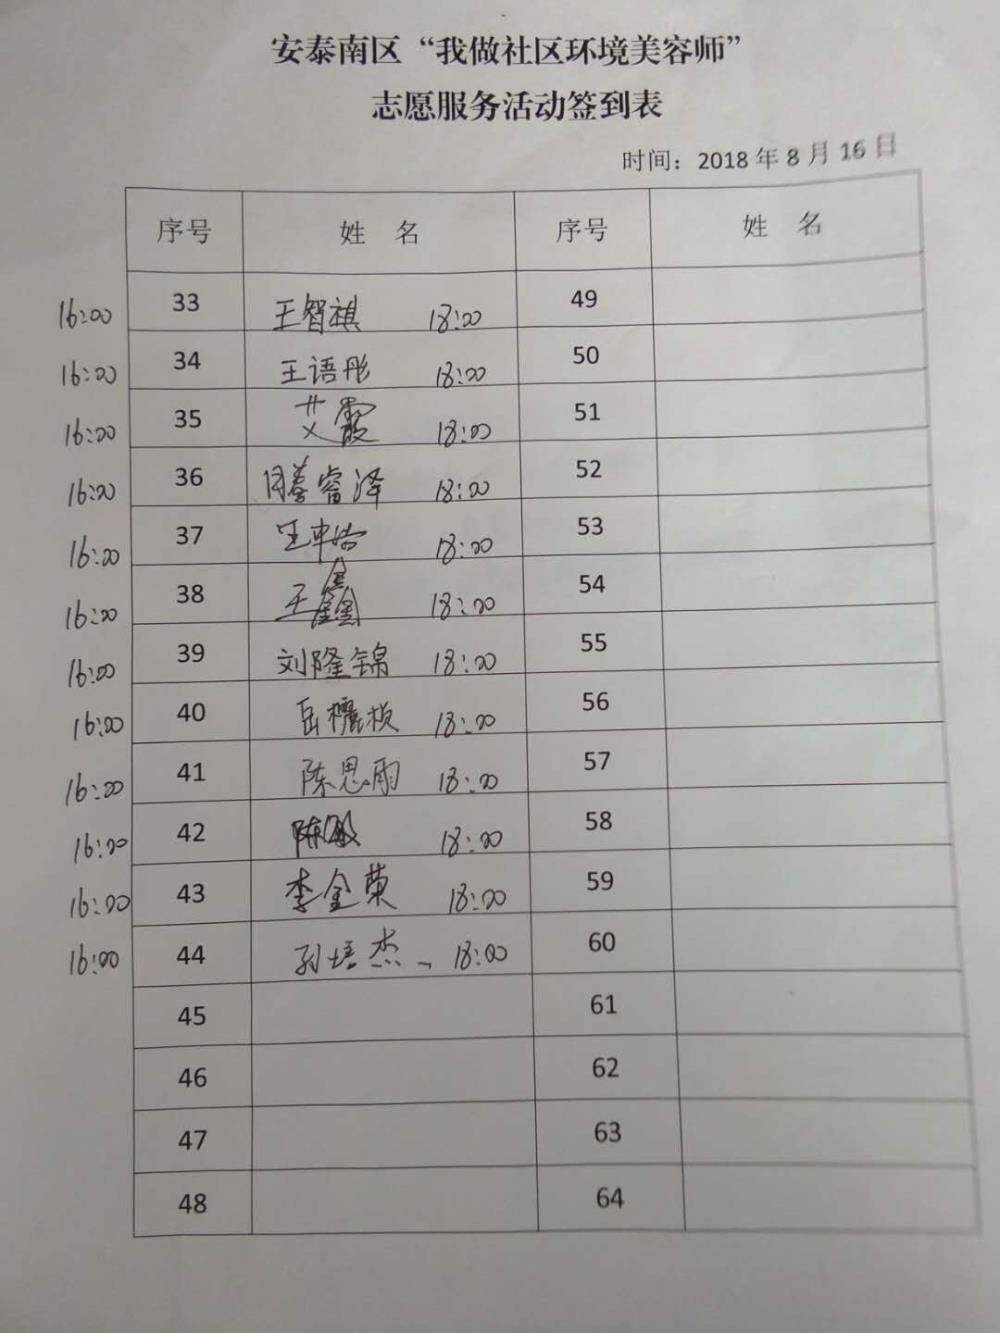 安泰南区“我做社区环境美容师”
志愿服务活动签到表
时间：2018 年 8 月 16 日
序号 姓 名 序号 姓 名
16:00 33 王智祺 18:00 49
16:00 34 王语彤 18:00 50
16:00 35 艾霞 18:00 51
16:00 36 睿泽 18:00 52
16:00 37 王中 18:00 53
16:00 38 王鑫 18:00 54
16:00 39 刘隆锦 18:00 55
16:00 40 岳 18:00 56
16:00 41 陈思雨 18:00 57
16:00 42 陈敏 18:00 58
16:00 43 李金荣 18:00 59
16:00 44 孙培杰 18:00 60
45 61
46 62
47 63
48 64